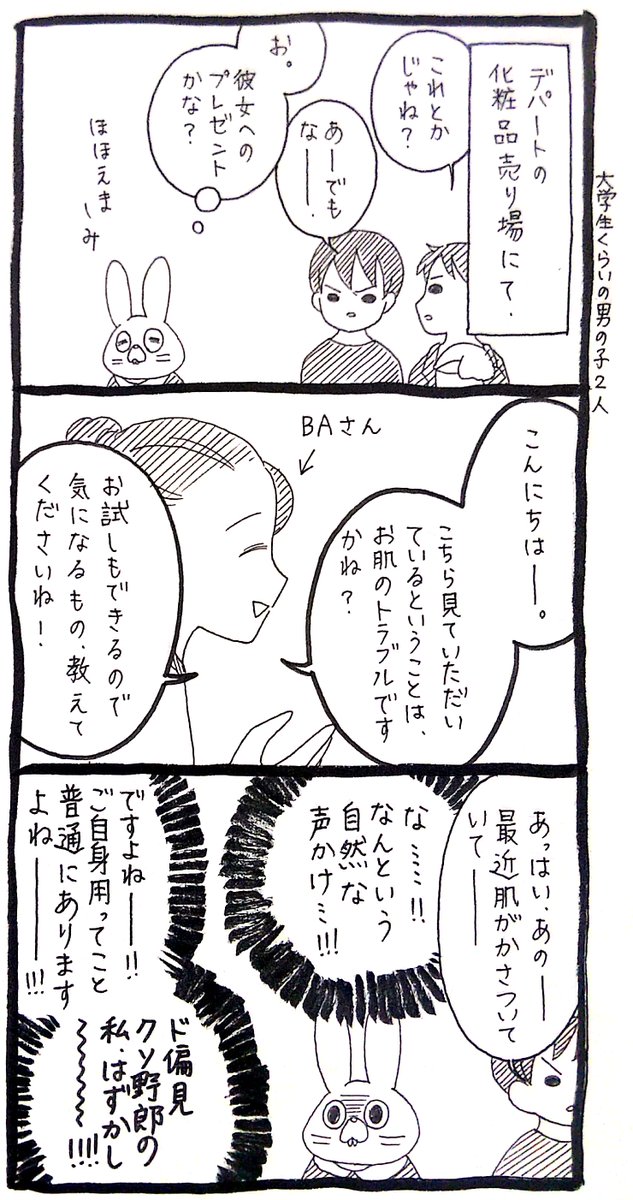 デパートの
化粧品売り場にて.
大学生くらいの男の子2人
これとか
じゃね?
あーでも
なー.
お。
彼女への
プレゼント
かな?
ほほえま
しみ
こんにちはー。
こちら見ていただい
ているということは、
お肌のトラブルです
かね?
BAさん
お試しもできるので
気になるもの、教えて
くださいね!
あっはい、あのー
最近肌がかさついて
いてー
な……!!
なんという
自然な
声かけ…!!!
ですよねー!!
ご自身用ってこと
普通にあります
よねー!!!
ド偏見
クソ野郎の
私、はずかし
〜〜〜〜!!!!